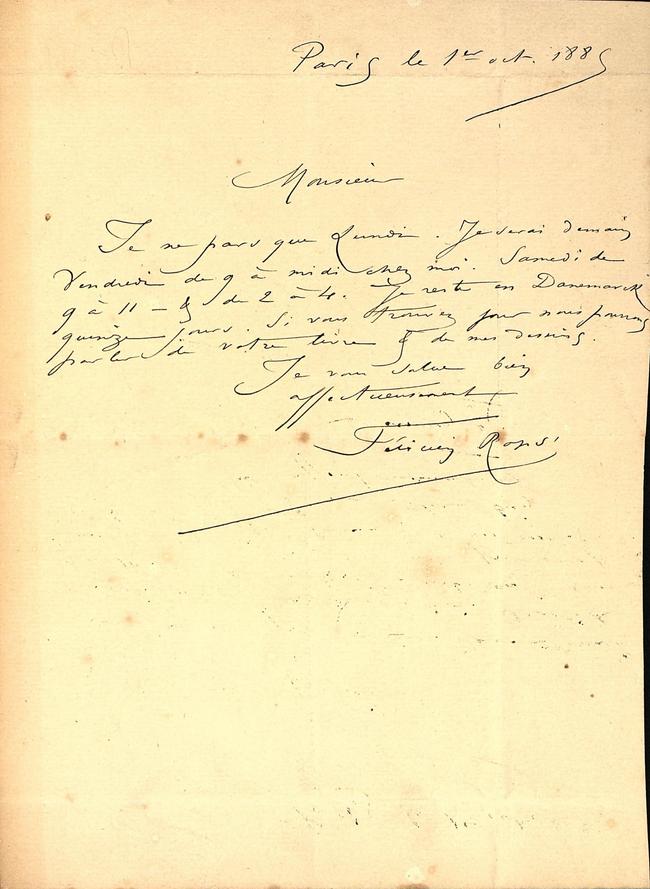 Paris le 1er oct. 1885
Monsieur
Je ne pars que Lundi. Je serai demain
Vendredi de 9 à midi chez moi. Samedi de
9 à 11 - & de 2 à 4. Je reste en Danemarck
quinze jours. Si vous trouvez jour nous pourrons
parler de votre livre & de mes dessins.
Je vous salue bien
affectueusement
Félicien Rops